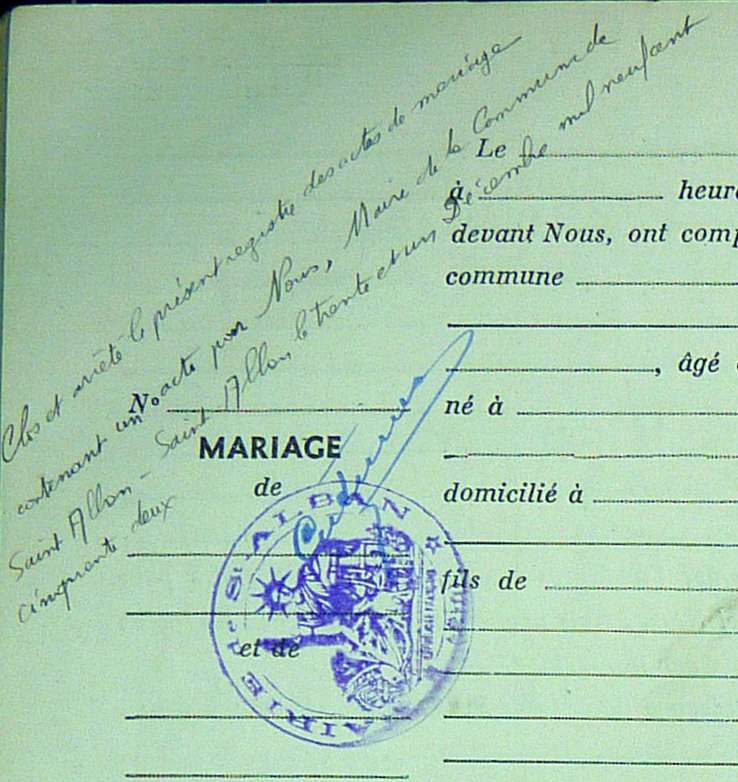 Clos et arrêté le présent registre des actes de mariage
contenant un acte par Nous, Maire de la Commune de
Saint Alban - Saint Alban, le trente et un Décembre mil neuf cent
cinquante deux
Le
à heure
devant Nous, ont comp
commune
, âgé
né à
domicilié à
fils de
No
MARIAGE
de
et de
MAIRIE de St ALBAN